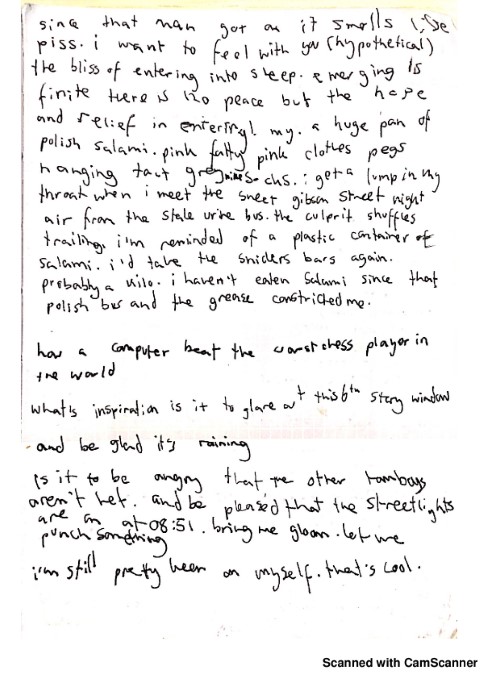 since that man got on it smells like
piss. i want to feel with you (hypothetical)
the bliss of entering into sleep. emerging is
finite there is no peace but the hope
and relief in entering! my. a huge pan of
polish salami. pink fatty pink clothes pegs
hanging taut chs. i get a lump in my
throat when i meet the sweet gibson street night
air from the stale urine bus. the culprit shuffles
trailing. i'm reminded of a plastic container of
salami. i'd take the sniders bars again.
probably a kilo. i haven't eaten salami since that
polish bus and the grease constricted me.
has a computer beat the worst chess player in
the world
what is inspiration is it to glare out this 6th story window
and be glad it's raining
is it to be angry that the other tomboys
aren't het. and be pleased that the streetlights
are on at 08:51. bring me gloom. let me
punch something
i'm still pretty keen on myself. that's cool.
Scanned with CamScanner